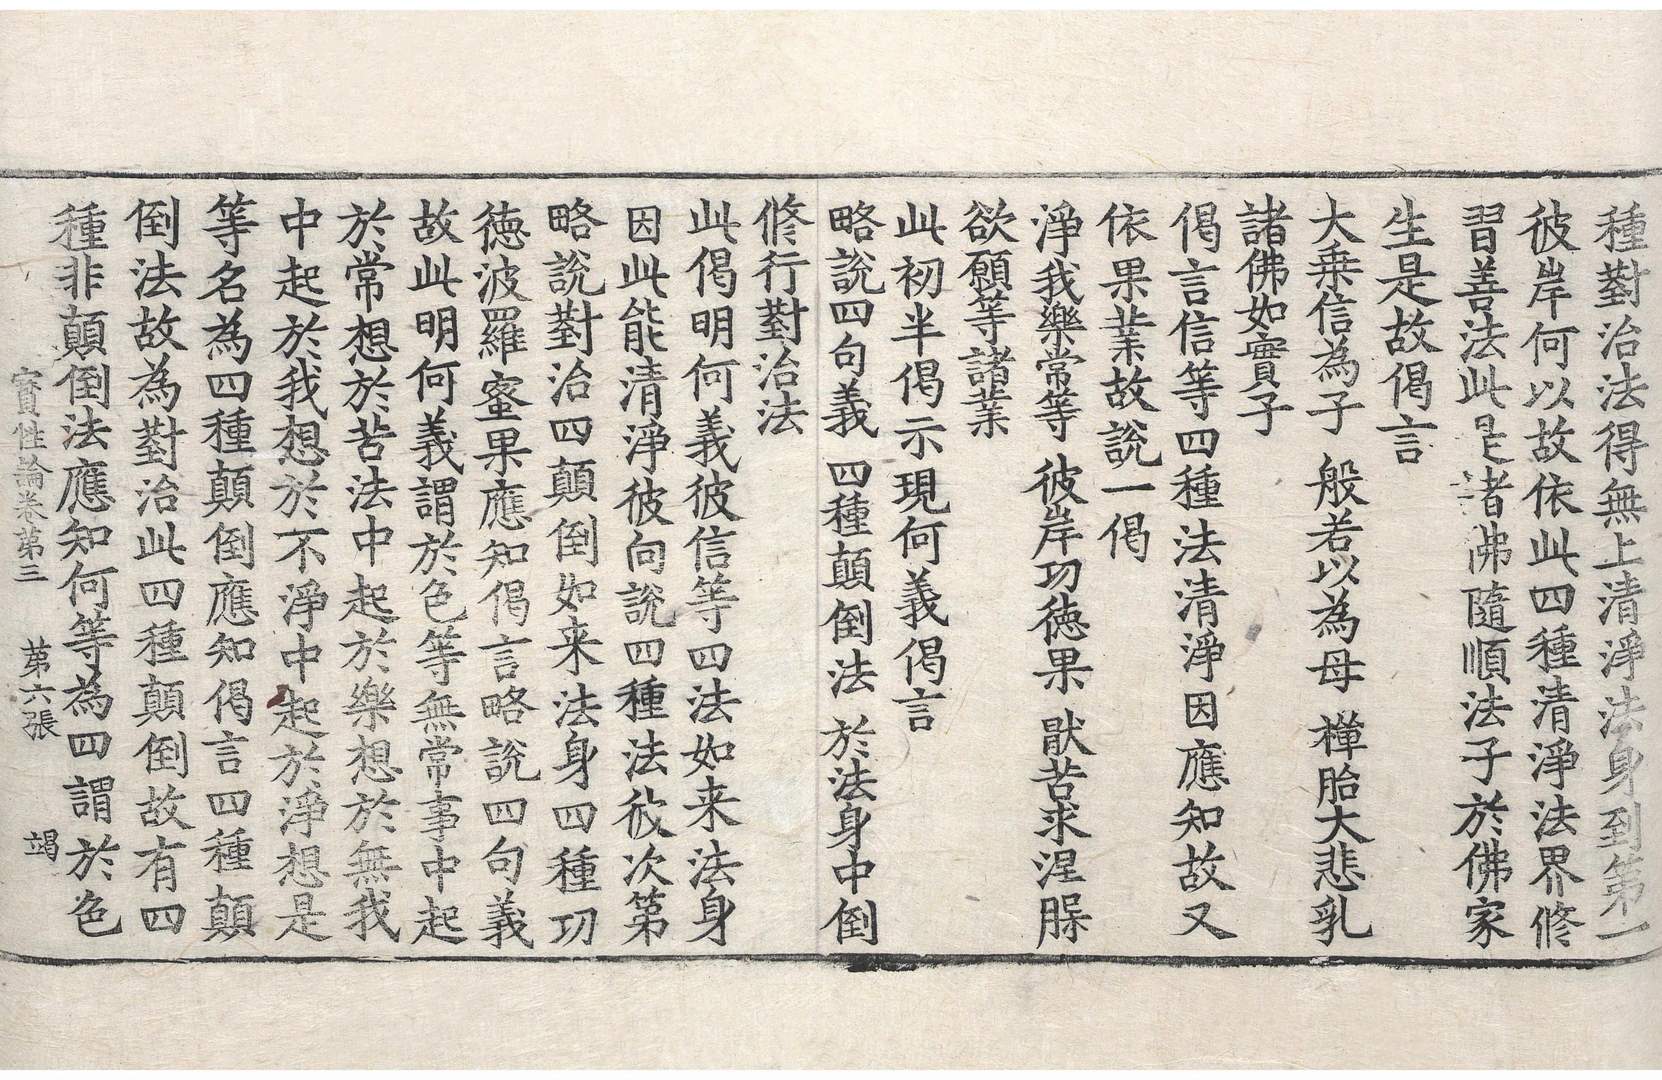 種對治法得無上清淨法身到第一
彼岸何以故依此四種清淨法界修
習善法此是諸佛隨順法子於佛家
生是故偈言
大乗信為子　般若以為母　禪胎大悲乳
諸佛如實子
偈言信等四種法清淨因應知故又
依果業故說一偈
淨我樂常等　彼岸功德果　猒苦求涅槃
欲願等諸業
此初半偈示現何義偈言
略說四句義　四種顛倒法　於法身中倒
修行對治法
此偈明何義彼信等四法如来法身
因此能清淨彼向說四種法彼次第
略說對治四顛倒如来法身四種功
德波羅蜜果應知偈言略說四句義
故此明何義謂於色等無常事中起
於常想於苦法中起於樂想於無我
中起於我想於不淨中起於淨想是
等名為四種顛倒應知偈言四種顛
倒法故為對治此四種顛倒故有四
種非顛倒法應知何等為四謂於色
寶性論卷第三　第六張　竭